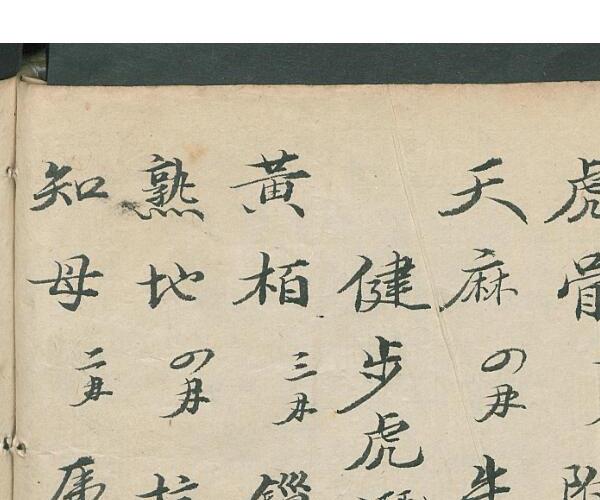 虎骨
天麻 四両
健步虎
黄栢 三両
熟地 四両
知母 二両